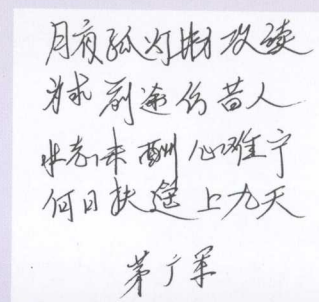 月夜孤灯勤攻读
为求前途仿昔人
壮志未酬心难宁
何日扶遥上九天
茅广军